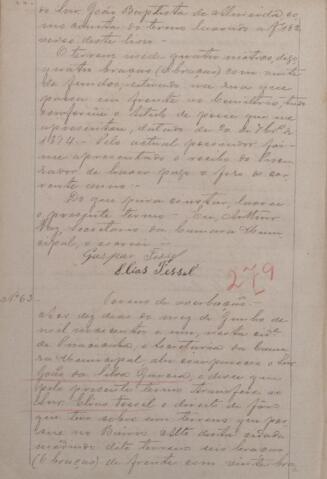 do Snr. João Baptista de Almeida, co-
mo consta do termo lavrado a fl. 62
verso deste livro.
O terreno mede quatro metros, digo
quatro braças (4 braças) com
de fundos, estando na rua que
passa em frente ao Cemiterio, tudo
conforme o titulo de posse que me
apresentou, datado de 20 de
1874. Pelo actual possuidor foi
me apresentado o recibo do Procu-
rador de haver pago o foro do cor-
rente anno.
Do que para constar, lavrei
o presente termo. Eu, Arthur
Vaz, Secretario da Camara Muni-
cipal, o escrevi.
Gaspar Fessel
Elias Fessel
279
Nº 63. Termo de averbação.
Aos dez dias do mez de Junho de
mil novecentos e um, nesta cid.e
de Piracicaba, e Secretaria da Cama-
ra Municipal, ahi compareceu o Snr.
João da Silva Garcia, e disse que
pelo presente termo transfere ao
Snr. Elias Fessel o direito de fôro
que tem sobre um terreno que pos-
sue no Bairro Alto desta cidade
medindo dito terreno seis braças
(6 braças) de frente com vinte bra